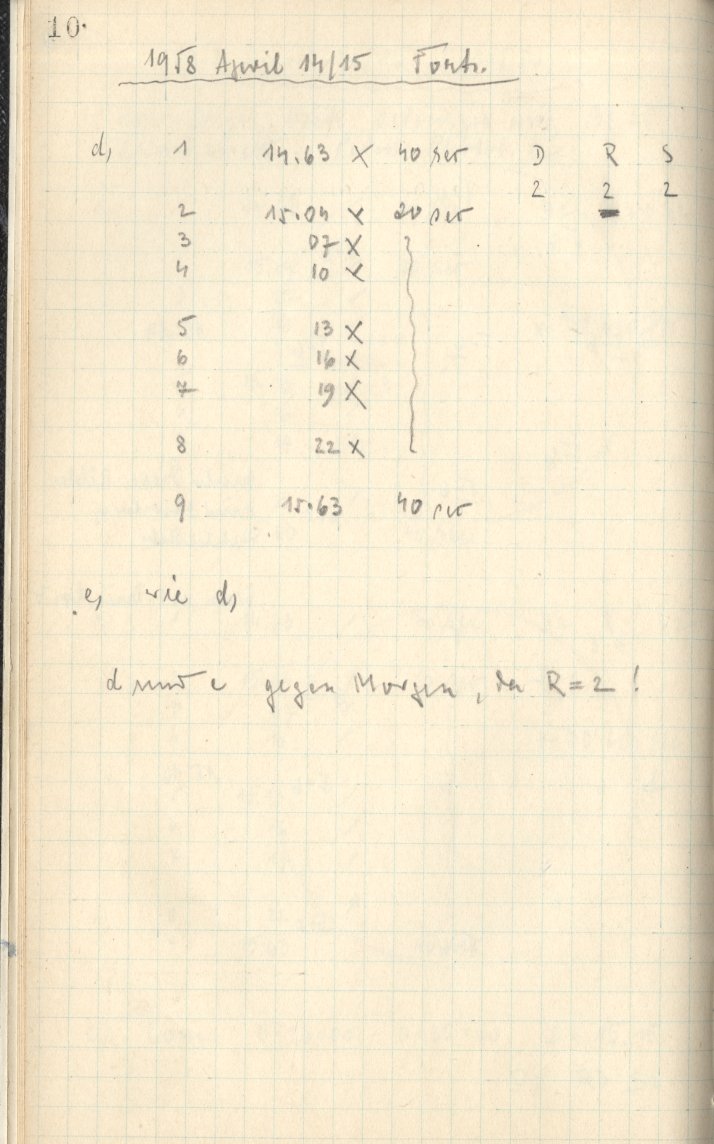 10.
1958 April 14/15 Forts.
d) 1 14.63 X 40 sec D R S
2 2 2
2 15.04 X 20 sec
3 07 X
4 10 X
5 13 X
6 16 X
7 19 X
8 22 X
9 15.63 40 sec
e) wie d)
d und e gegen Morgen, da R=2!